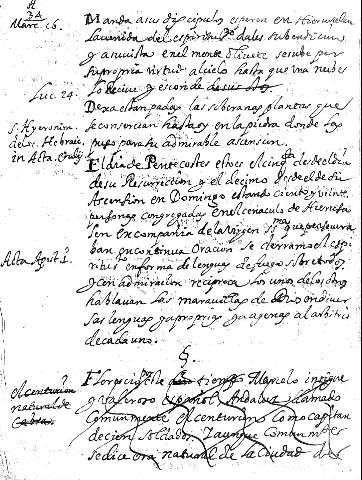 A
34
Marc. 16.
Manda a sus discipulos esperen en Hierusalen
la venida del espiritu sto dales su bendicion
y a su vista en el monte olivete se sube por
su propria virtud al cielo hasta que una nube
lo recive y esconde de sus
Luc. 24.
Dexa estanpadas las soberanas plantas que
se conservan hasta oy en la piedra donde los
puso para tu admirable ascension.
S. Hyeronim.
de los. Hebraic.
in Acta.
El dia de Pentecostes esto es el
de su Resurrection y el decimo desde el de su
Ascension en Domingo estando ciento y veinte
personas congregadas en el cenaculo de Hierusa
len en compañia de la Virgen
ban en continua Oracion se
Acta Apost. 1.
en forma de lenguas de fuego sobre todos
y con admiracion reciproca los unos de los otros
hablavan las maravillas de Dios en diver
sas lenguas ya proprias ya agenas al arbitrio
de cada uno.
§.
El centurion
natural de
Florecio por tiempo Marcelo insigne
español Andaluz llamado
comunmente el centurion como capitan
de cien soldados. Y aunque comunmte
se dice era natural de la Ciudad de